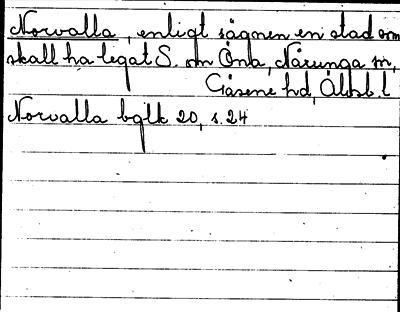 Norvalla, enligt sägnen en stad som
skall ha legat S. om Önb, Nårunga sn,
Gäsene hd, Älvsb. l
Norvalla bglk 20, s. 24